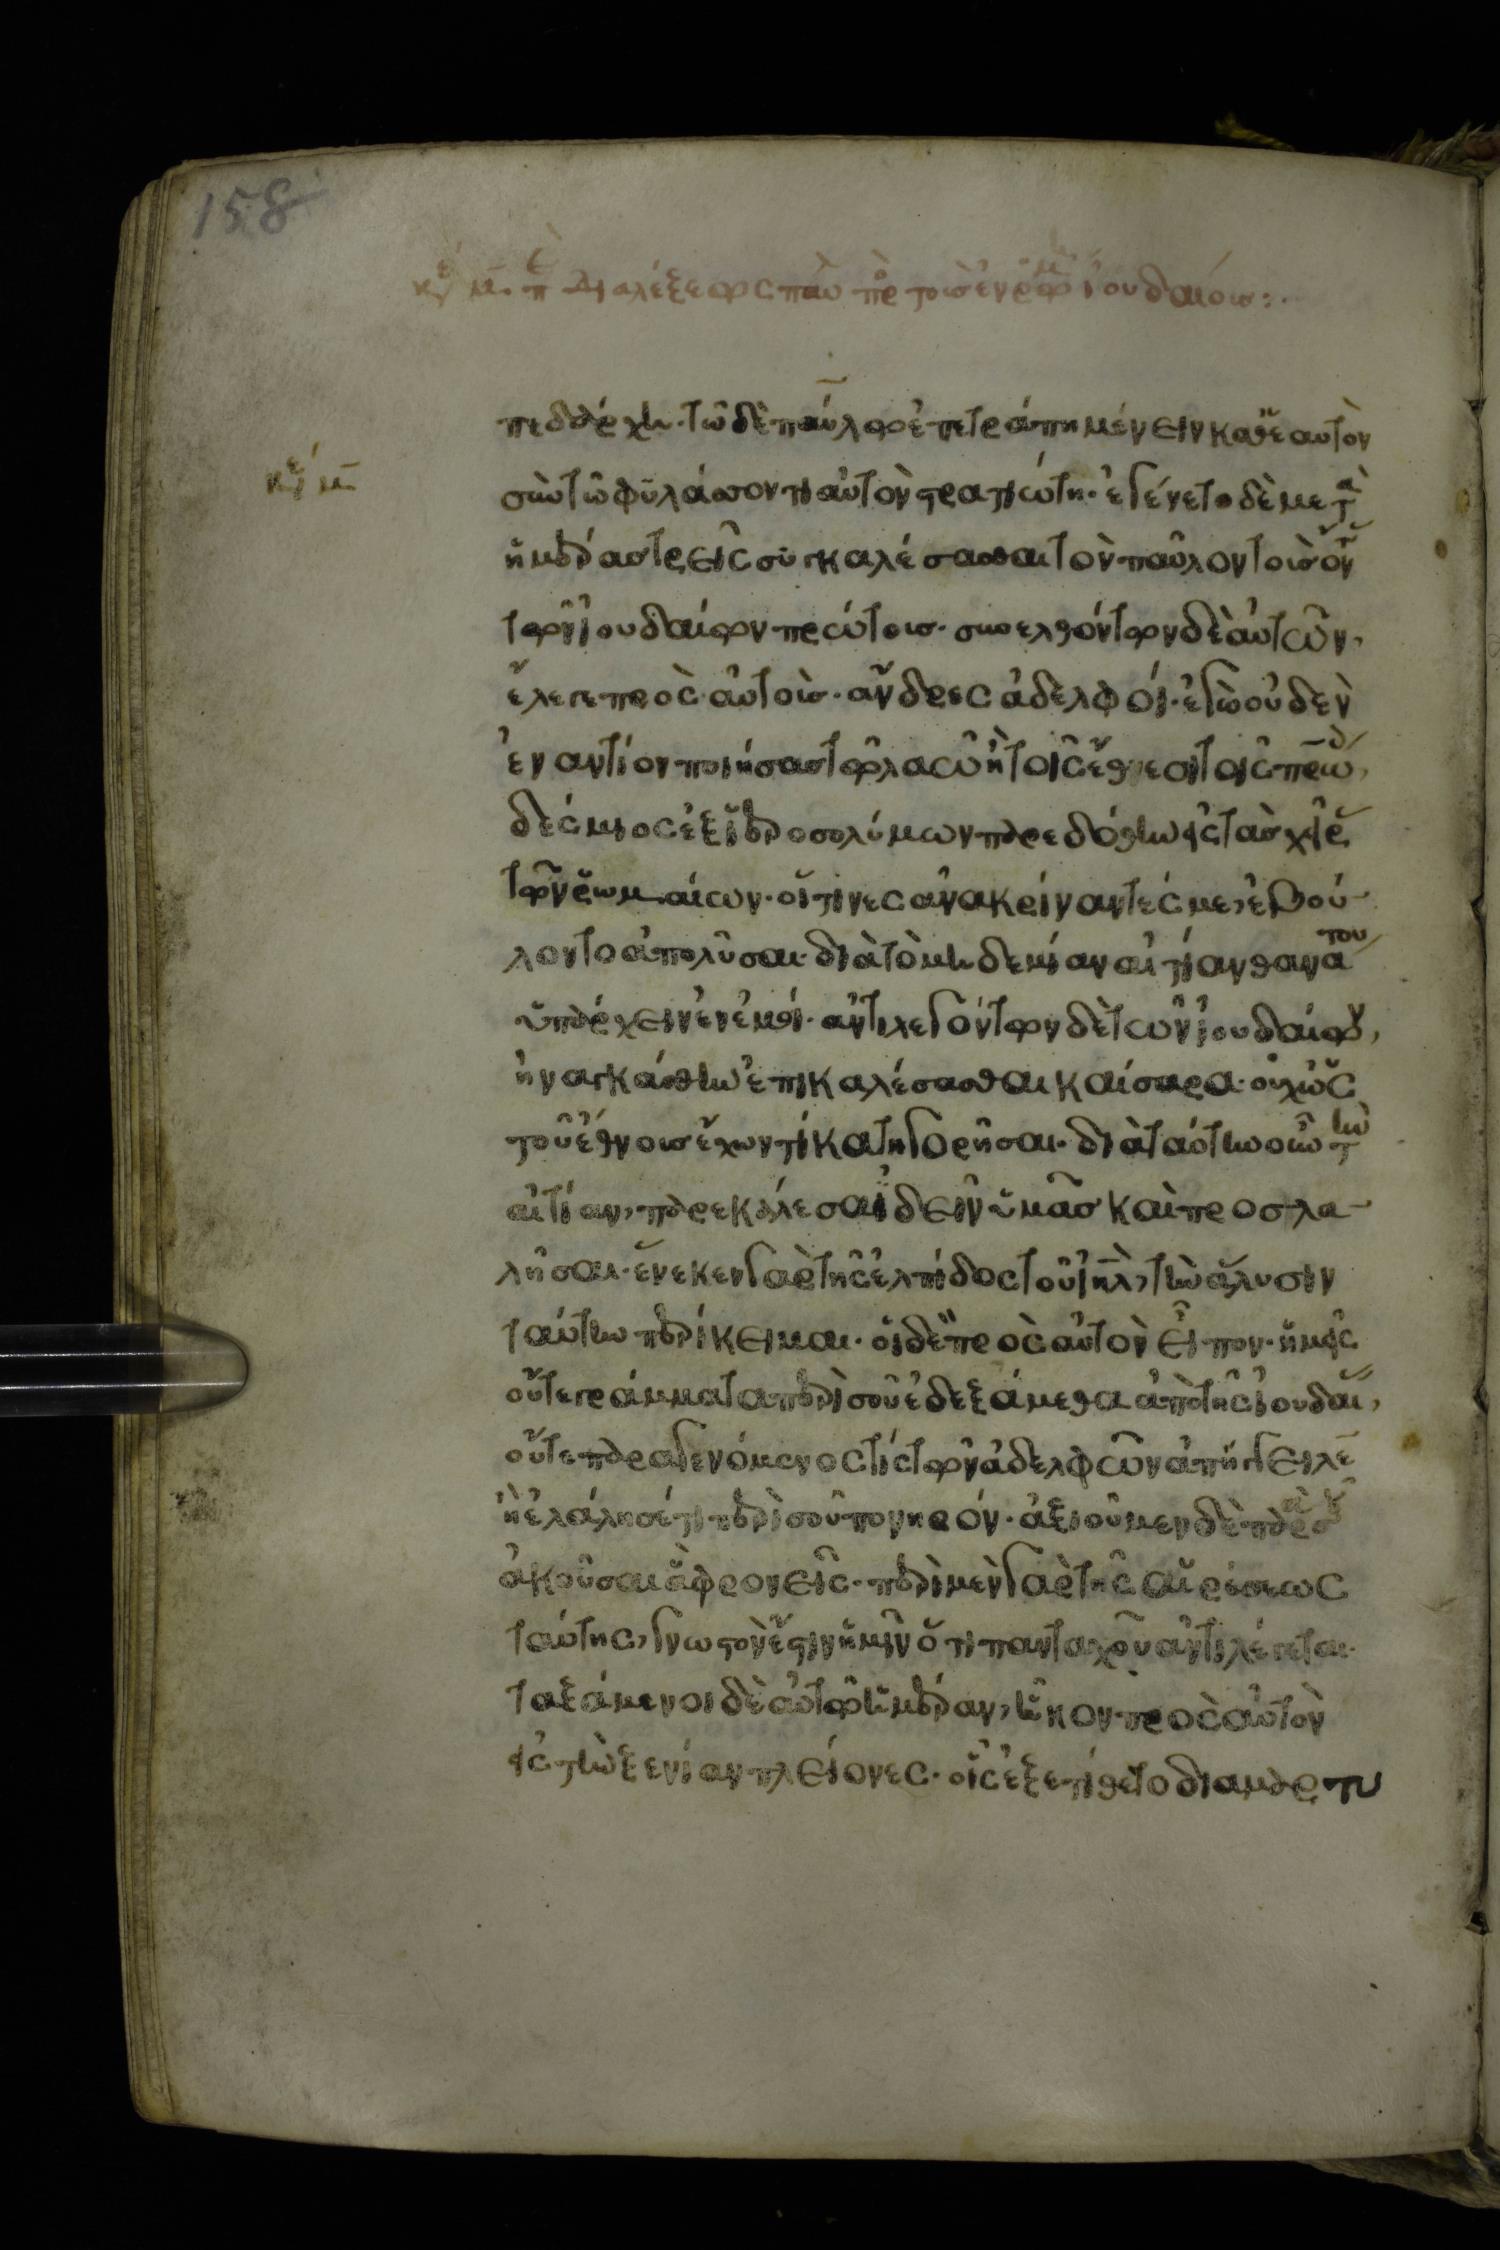 158
κε μ περὶ διαλέξεως παύλου πρὸς τοὺς ἐν ῥώμῃ ἰουδαίους:
πεδάρχη. τῶ δὲ παύλω ἐπετράπη μένειν καθ' ἑαυτὸν
κε μ
σὺν τῶ φυλάσσοντι αὐτὸν στρατιώτη. ἐγένετο δὲ μετὰ
ἡμέρας τρεῖς συγκαλέσασθαι τὸν παῦλον τοὺς ὄντας
τῶν ἰουδαίων πρώτους. συνελθόντων δὲ αὐτῶν,
ἔλεγε πρὸς αὐτούς. ἄνδρες ἀδελφοί. ἐγὼ οὐδὲν
ἐναντίον ποιήσας τῶ λαῶ ἢ τοῖς ἔθνεσι τοῖς πατρώοις,
δέσμιος ἐξ ἱεροσολύμων παρεδόθην εἰς τὰς χεῖρας
τῶν ῥωμαίων. οἵτινες ἀνακρίναντές με, ἐβού-
λοντο ἀπολῦσαι. διὰ τὸ μηδεμίαν αἰτίαν θανάτου
ὑπάρχειν ἐν ἐμοί. ἀντιλεγόντων δὲ τῶν ἰουδαίων,
ἠναγκάσθην ἐπικαλέσασθαι καίσαρα. οὐχ ὡς
τοῦ ἔθνους ἔχων τί κατηγορῆσαι. διὰ ταύτην οὖν τὴν
αἰτίαν, παρεκάλεσα ἰδεῖν ὑμᾶς καὶ προσλα-
λῆσαι. ἕνεκεν γὰρ τῆς ἐλπίδος τοῦ ἰηλ, τὴν ἅλυσιν
ταύτην περίκειμαι. οἱ δὲ πρὸς αὐτὸν εἶπον. ἡμεῖς
οὔτε γράμματα περὶ σοῦ ἐδεξάμεθα ἀπὸ τῆς ἰουδαίας,
οὔτε παραγενόμενος τίς τῶν ἀδελφῶν ἀπήγγειλεν
ἢ ἐλάλησέ τι περὶ σοῦ πονηρόν. ἀξιοῦμεν δὲ παρὰ σοῦ
ἀκοῦσαι ἃ φρονεῖς. περὶ μὲν γὰρ τῆς αἱρέσεως
ταύτης, γνωστὸν ἔστιν ἡμῖν ὅτι πανταχοῦ ἀντιλέγεται.
ταξάμενοι δὲ αὐτῶ ἡμέραν, ἧκον πρὸς αὐτὸν
εἰς τὴν ξενίαν πλείονες. οἷς ἐξετίθετο διαμαρτυ